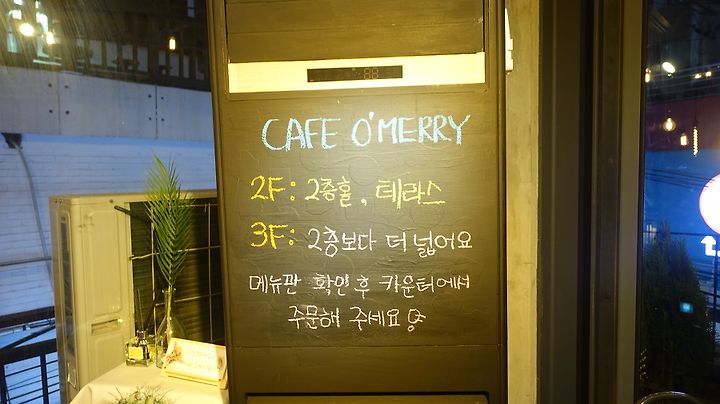 CAFE O'MERRY
2F: 2층홀, 테라스
3F: 2층보다 더 넓어요
메뉴판 확인 후 카운터에서
주문해 주세요